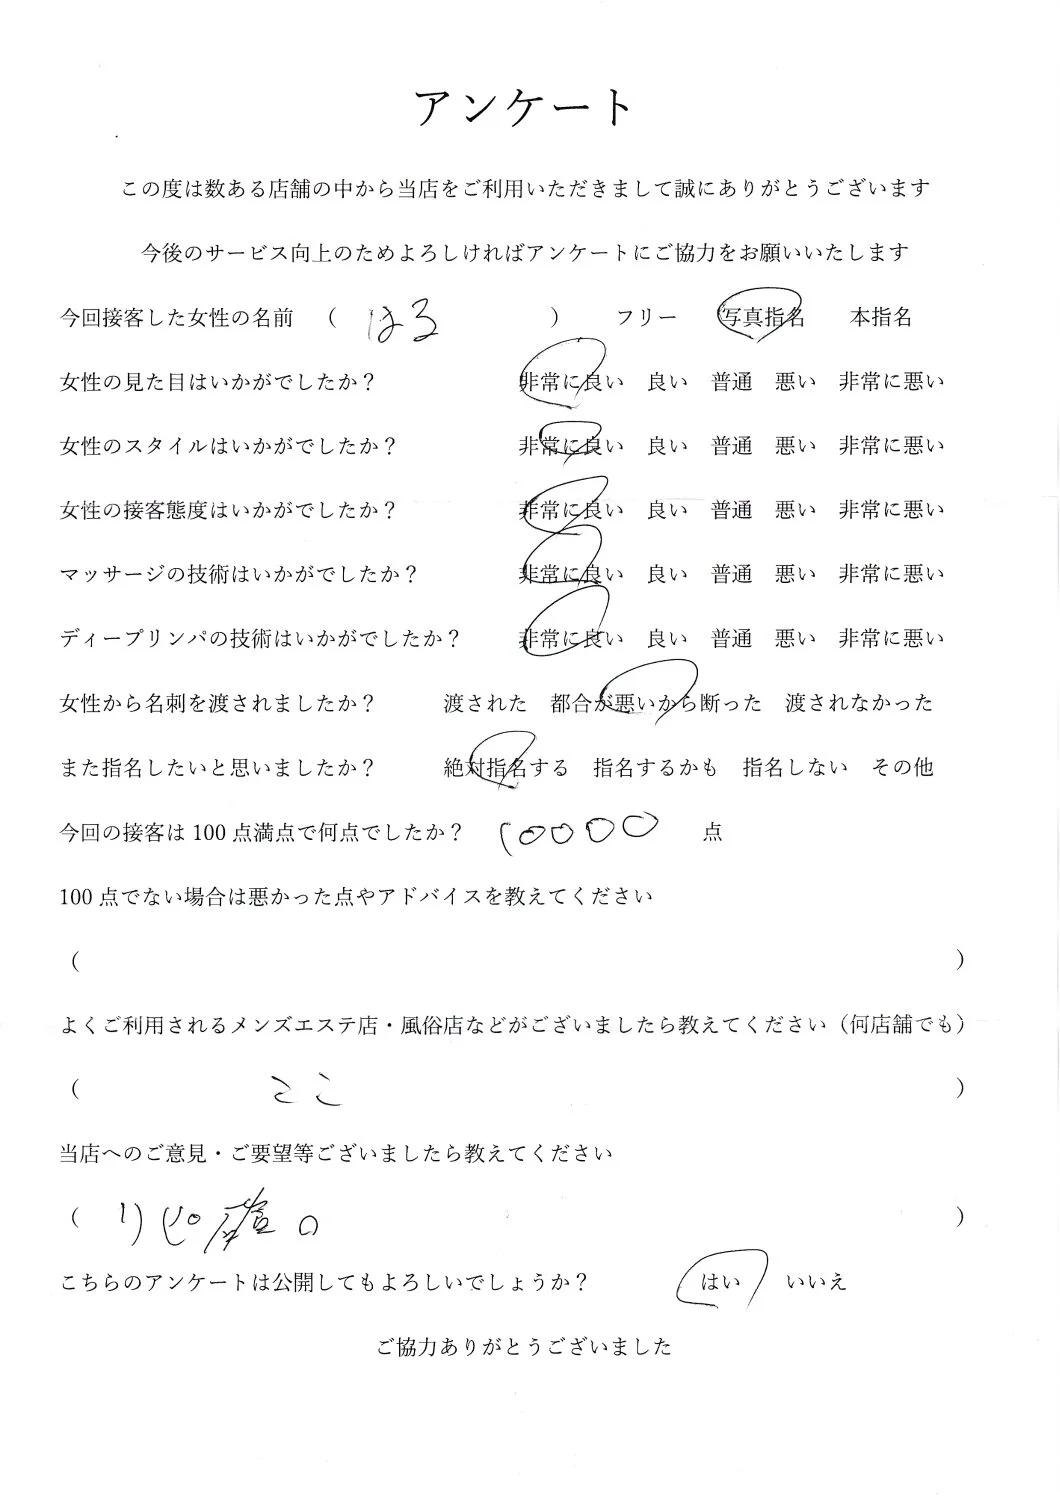 アンケート
この度は数ある店舗の中から当店をご利用いただきまして誠にありがとうございます
今後のサービス向上のためよろしければアンケートにご協力をお願いいたします
今回接客した女性の名前 （ はる ） フリー 写真指名 本指名
女性の見た目はいかがでしたか？ 非常に良い 良い 普通 悪い 非常に悪い
女性のスタイルはいかがでしたか？ 非常に良い 良い 普通 悪い 非常に悪い
女性の接客態度はいかがでしたか？ 非常に良い 良い 普通 悪い 非常に悪い
マッサージの技術はいかがでしたか？ 非常に良い 良い 普通 悪い 非常に悪い
ディープリンパの技術はいかがでしたか？ 非常に良い 良い 普通 悪い 非常に悪い
女性から名刺を渡されましたか？ 渡された 都合が悪いから断った 渡されなかった
また指名したいと思いましたか？ 絶対指名する 指名するかも 指名しない その他
今回の接客は 100 点満点で何点でしたか？ 10000 点
100 点でない場合は悪かった点やアドバイスを教えてください
（ ）
よくご利用されるメンズエステ店・風俗店などがございましたら教えてください（何店舗でも）
（ ここ ）
当店へのご意見・ご要望等ございましたら教えてください
（ リピ ）
こちらのアンケートは公開してもよろしいでしょうか？ はい いいえ
ご協力ありがとうございました